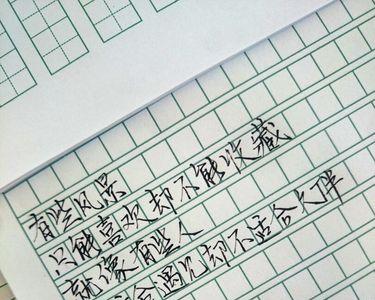 有些风景
只能喜欢却不能收藏
就像有些人
合遇见却不适合久伴